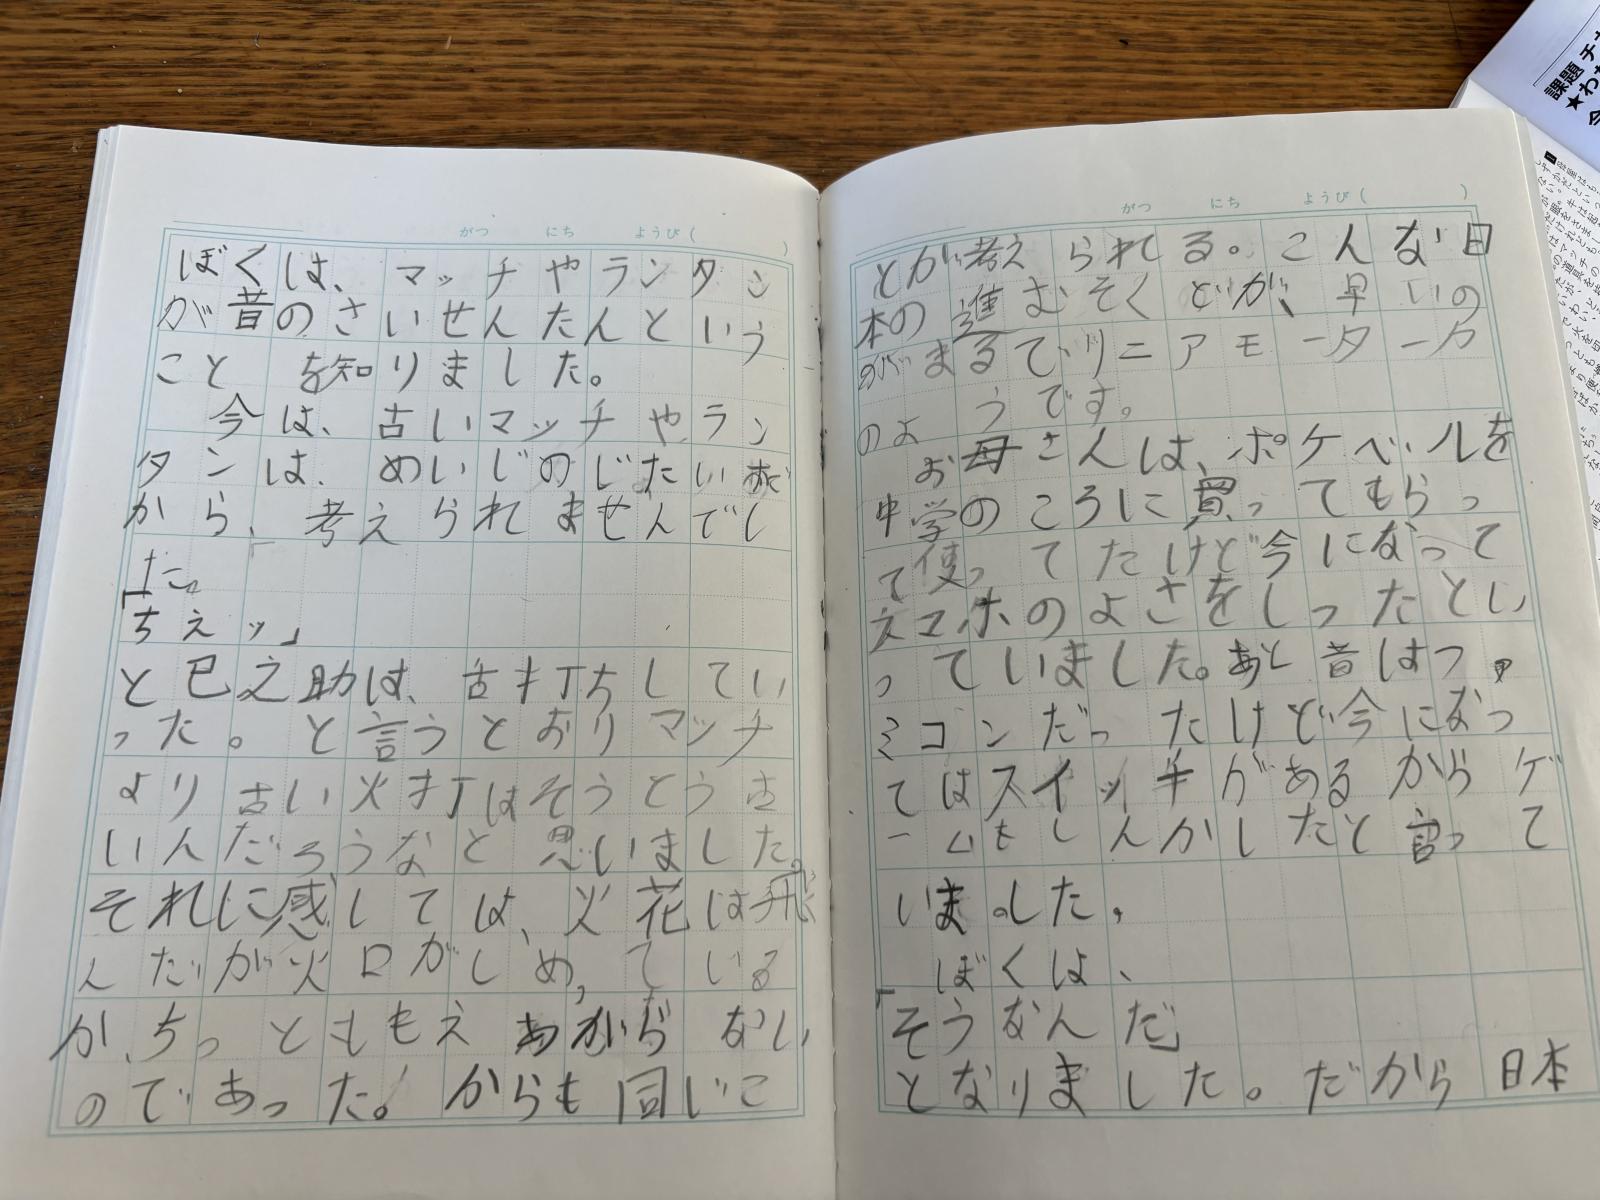 がつ にち ようび( )
ぼくは、マッチやランタン
が昔のさいせんたんという
こと を知りました。
今は、古いマッチやラン
タンは、めいじのじたいだ
から、考えられませんでし
た。
「ちえッ」
と巳之助は、舌打ちしてい
った。と言うとおりマッチ
より古い火打はそうとう古
いんだろうなと思いました。
それに感しては、火花は飛
んだが火口がしめっている
か、ちっとももえあがらない
のであった。からも同じこ
がつ にち ようび( )
とが考えられる。こんな日
本の進むそくどが、早いの
がまるで、リニアモーターカー
のようです。
お母さんは、ポケベルを
中学のころに買ってもらっ
て使ってたけど今になって
スマホのよさをしったとい
っていました。あと昔はファ
ミコンだったけど今になっ
てはスイッチがあるからゲ
ームもしんかしたと言って
いました。
ぼくは、
「そうなんだ」
となりました。だから日本
課題